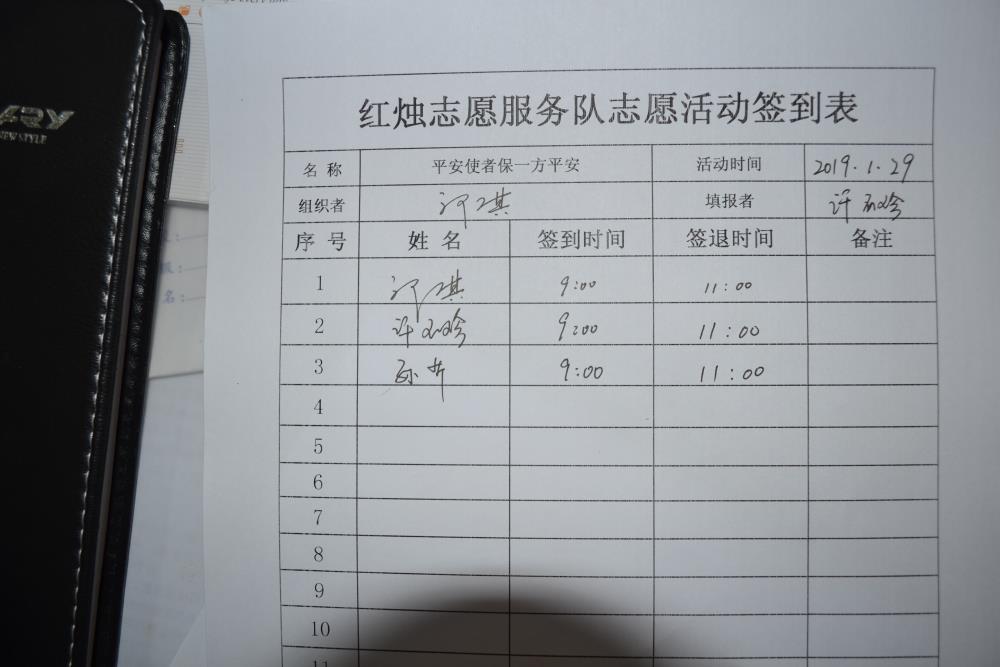 ARY
NEW STYLE
名：
红烛志愿服务队志愿活动签到表
名 称 平安使者保一方平安 活动时间 2019.1.29
组织者 琪 填报者 许
序 号 姓 名 签到时间 签退时间 备注
1 琪 9:00 11:00
2 许 9:00 11:00
3 孙 9:00 11:00
4
5
6
7
8
9
10
11